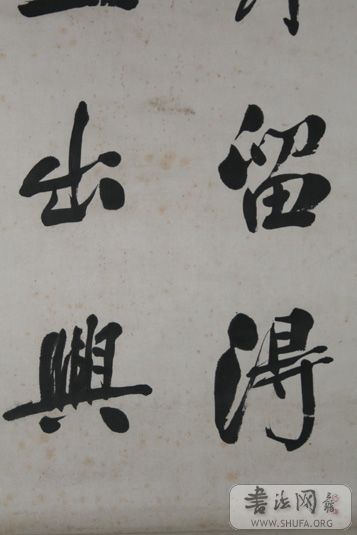 留得
出興
書法网
WWW.SHUFA.ORG